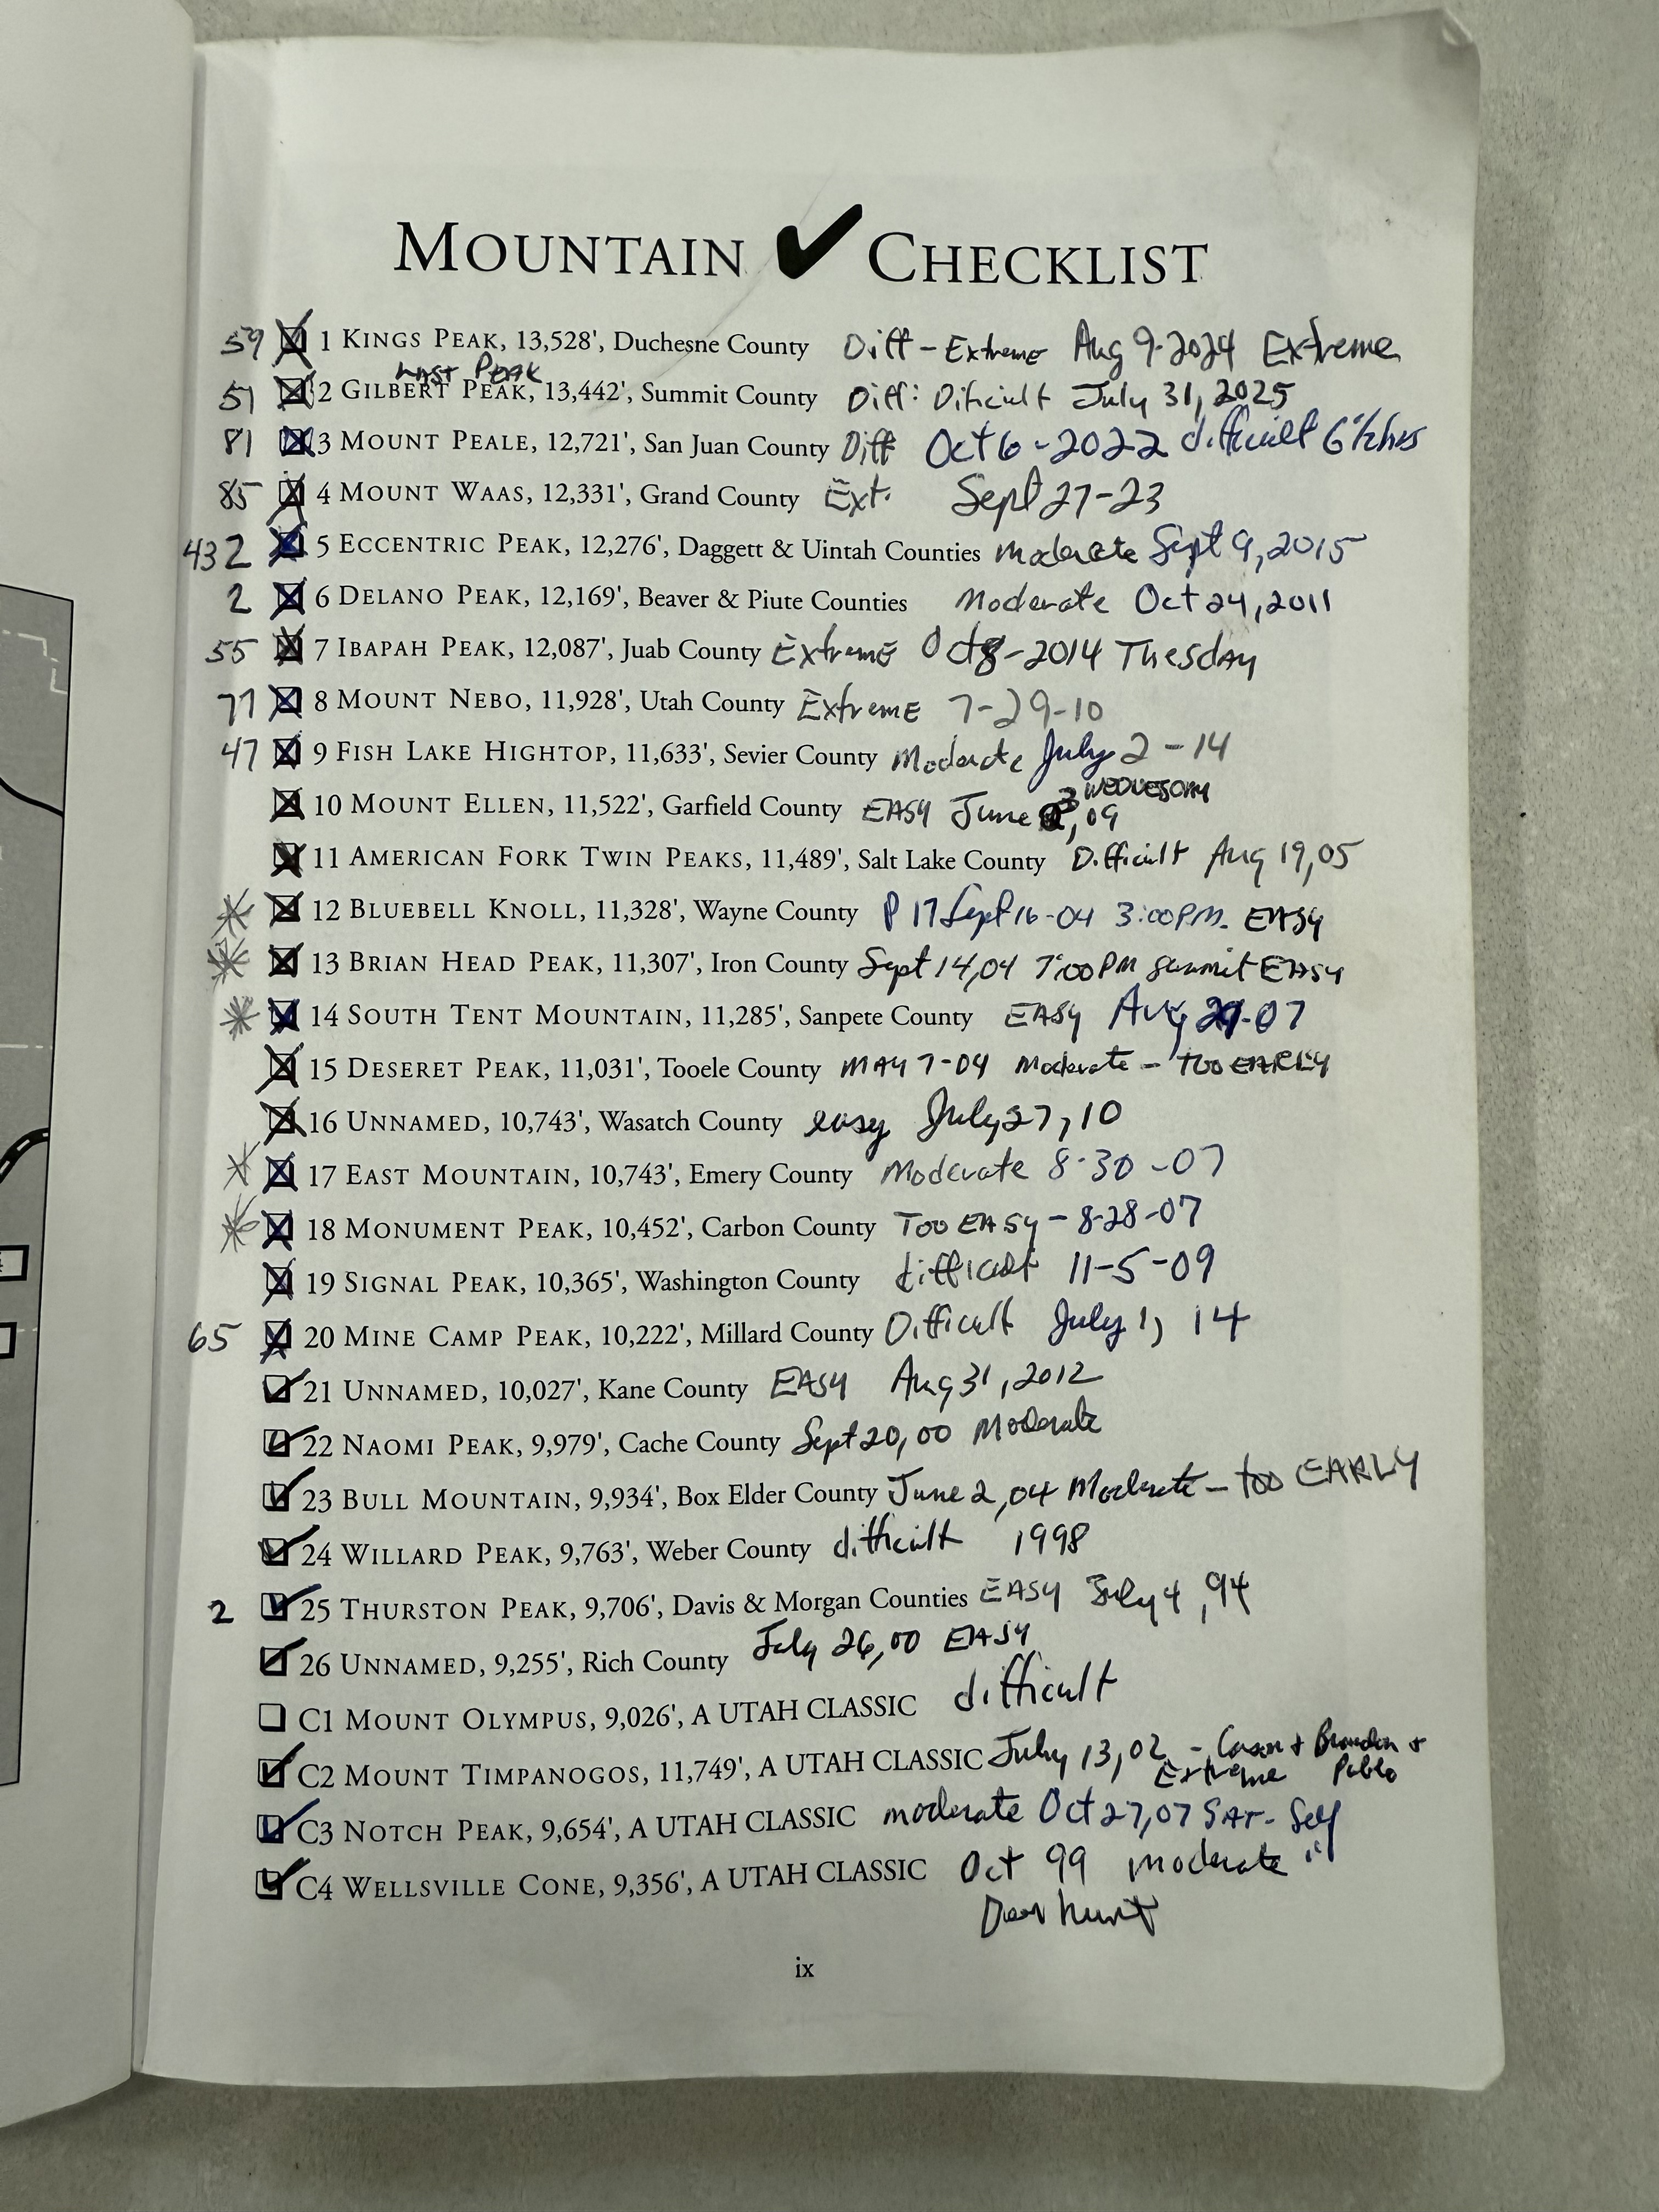 MOUNTAIN ✔ CHECKLIST
59 1 KINGS PEAK, 13,528', Duchesne County Diff - Extreme Aug 9-2024 Extreme
LAST PEAK
51 2 GILBERT PEAK, 13,442', Summit County Diff: Dificult July 31, 2025
81 3 MOUNT PEALE, 12,721', San Juan County Diff Oct 6-2022 difficult 6½hrs
85 4 MOUNT WAAS, 12,331', Grand County Ext. Sept 27-23
432 5 ECCENTRIC PEAK, 12,276', Daggett & Uintah Counties Moderate Sept 9, 2015
2 6 DELANO PEAK, 12,169', Beaver & Piute Counties Moderate Oct 24, 2011
55 7 IBAPAH PEAK, 12,087', Juab County Extreme Oct 8-2014 Tuesday
77 8 MOUNT NEBO, 11,928', Utah County Extreme 7-29-10
47 9 FISH LAKE HIGHTOP, 11,633', Sevier County Moderate July 2-14
10 MOUNT ELLEN, 11,522', Garfield County EASY June 3, 09 WEDNESDAY
11 AMERICAN FORK TWIN PEAKS, 11,489', Salt Lake County Difficult Aug 19, 05
12 BLUEBELL KNOLL, 11,328', Wayne County P 17 Sept 16-04 3:00 P.M. EASY
13 BRIAN HEAD PEAK, 11,307', Iron County Sept 14, 04 7:00 PM Summit EASY
14 SOUTH TENT MOUNTAIN, 11,285', Sanpete County EASY Aug 29-07
15 DESERET PEAK, 11,031', Tooele County MAY 7-04 Moderate - TOO EARLY
16 UNNAMED, 10,743', Wasatch County easy July 27, 10
17 EAST MOUNTAIN, 10,743', Emery County Moderate 8-30-07
18 MONUMENT PEAK, 10,452', Carbon County TOO EASY - 8-28-07
19 SIGNAL PEAK, 10,365', Washington County difficult 11-5-09
65 20 MINE CAMP PEAK, 10,222', Millard County Difficult July 1, 14
21 UNNAMED, 10,027', Kane County EASY Aug 31, 2012
22 NAOMI PEAK, 9,979', Cache County Sept 20, 00 Moderate
23 BULL MOUNTAIN, 9,934', Box Elder County June 2, 04 Moderate - too EARLY
24 WILLARD PEAK, 9,763', Weber County difficult 1998
2 25 THURSTON PEAK, 9,706', Davis & Morgan Counties EASY July 4, 94
26 UNNAMED, 9,255', Rich County July 26, 00 EASY
C1 MOUNT OLYMPUS, 9,026', A UTAH CLASSIC difficult
C2 MOUNT TIMPANOGOS, 11,749', A UTAH CLASSIC July 13, 02 - + Brandon +
Extreme Pablo
C3 NOTCH PEAK, 9,654', A UTAH CLASSIC moderate Oct 27, 07 SAT- Self
C4 WELLSVILLE CONE, 9,356', A UTAH CLASSIC Oct 99 moderate "
Deer hunt
ix